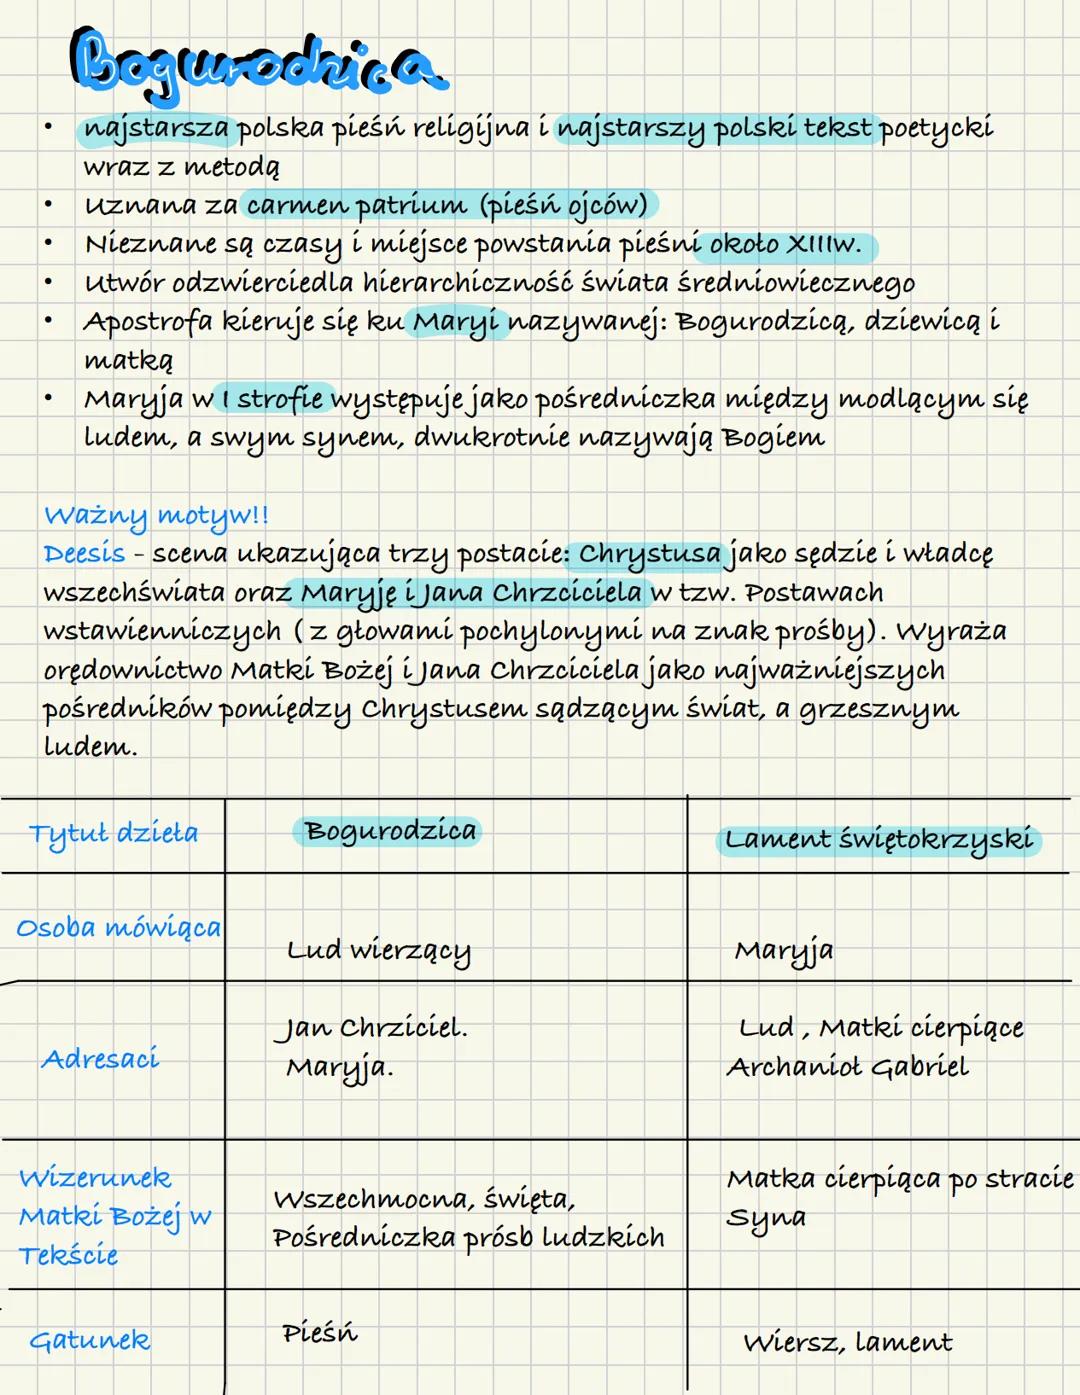 Bogurodzica
• najstarsza polska pieśń religijna i najstarszy polski tekst poetycki
wraz z metodą
• Uznana za carmen patrium (pieśń ojców)
• Nieznane są czasy i miejsce powstania pieśni około XIIIw.
• Utwór odzwierciedla hierarchiczność świata średniowiecznego
• Apostrofa kieruje się ku Maryi nazywanej: Bogurodzicą, dziewicą i
matką
• Maryja w I strofie występuje jako pośredniczka między modlącym się
ludem, a swym synem, dwukrotnie nazywają Bogiem
Ważny motyw!!
Deesis - scena ukazująca trzy postacie: Chrystusa jako sędzie i władcę
wszechświata oraz Maryję i Jana Chrzciciela w tzw. Postawach
wstawienniczych ( z głowami pochylonymi na znak prośby). Wyraża
orędownictwo Matki Bożej i Jana Chrzciciela jako najważniejszych
pośredników pomiędzy Chrystusem sądzącym świat, a grzesznym
ludem.
Tytuł dzieła Bogurodzica Lament świętokrzyski
Osoba mówiąca Lud wierzący Maryja
Adresaci
Jan Chrziciel.
Maryja.
Lud , Matki cierpiące
Archanioł Gabriel
Wizerunek
Matki Bożej w
Tekście
Wszechmocna, święta,
Pośredniczka prósb ludzkich
Matka cierpiąca po stracie
Syna
Gatunek Pieśń Wiersz, lament